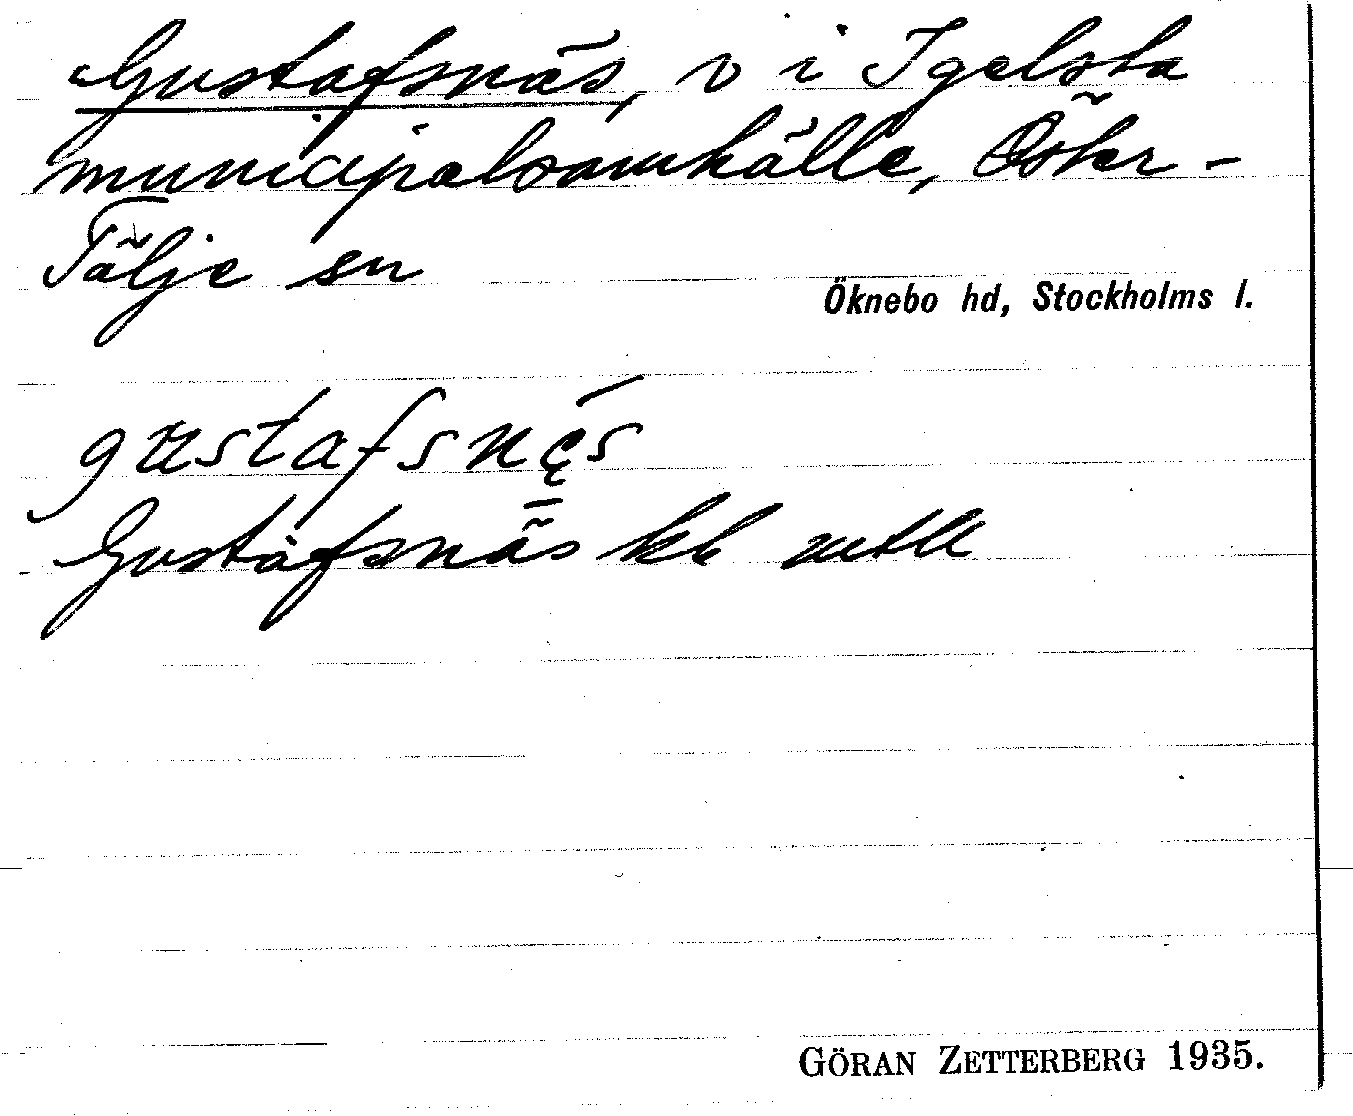 Gustafsnäs, v i Igelsta
municipalsamhälle, Öster-
Tälje sn
Öknebo hd, Stockholms l.
gustafsnę́s
Gustafsnäs kb mtl
GÖRAN ZETTERBERG 1935.